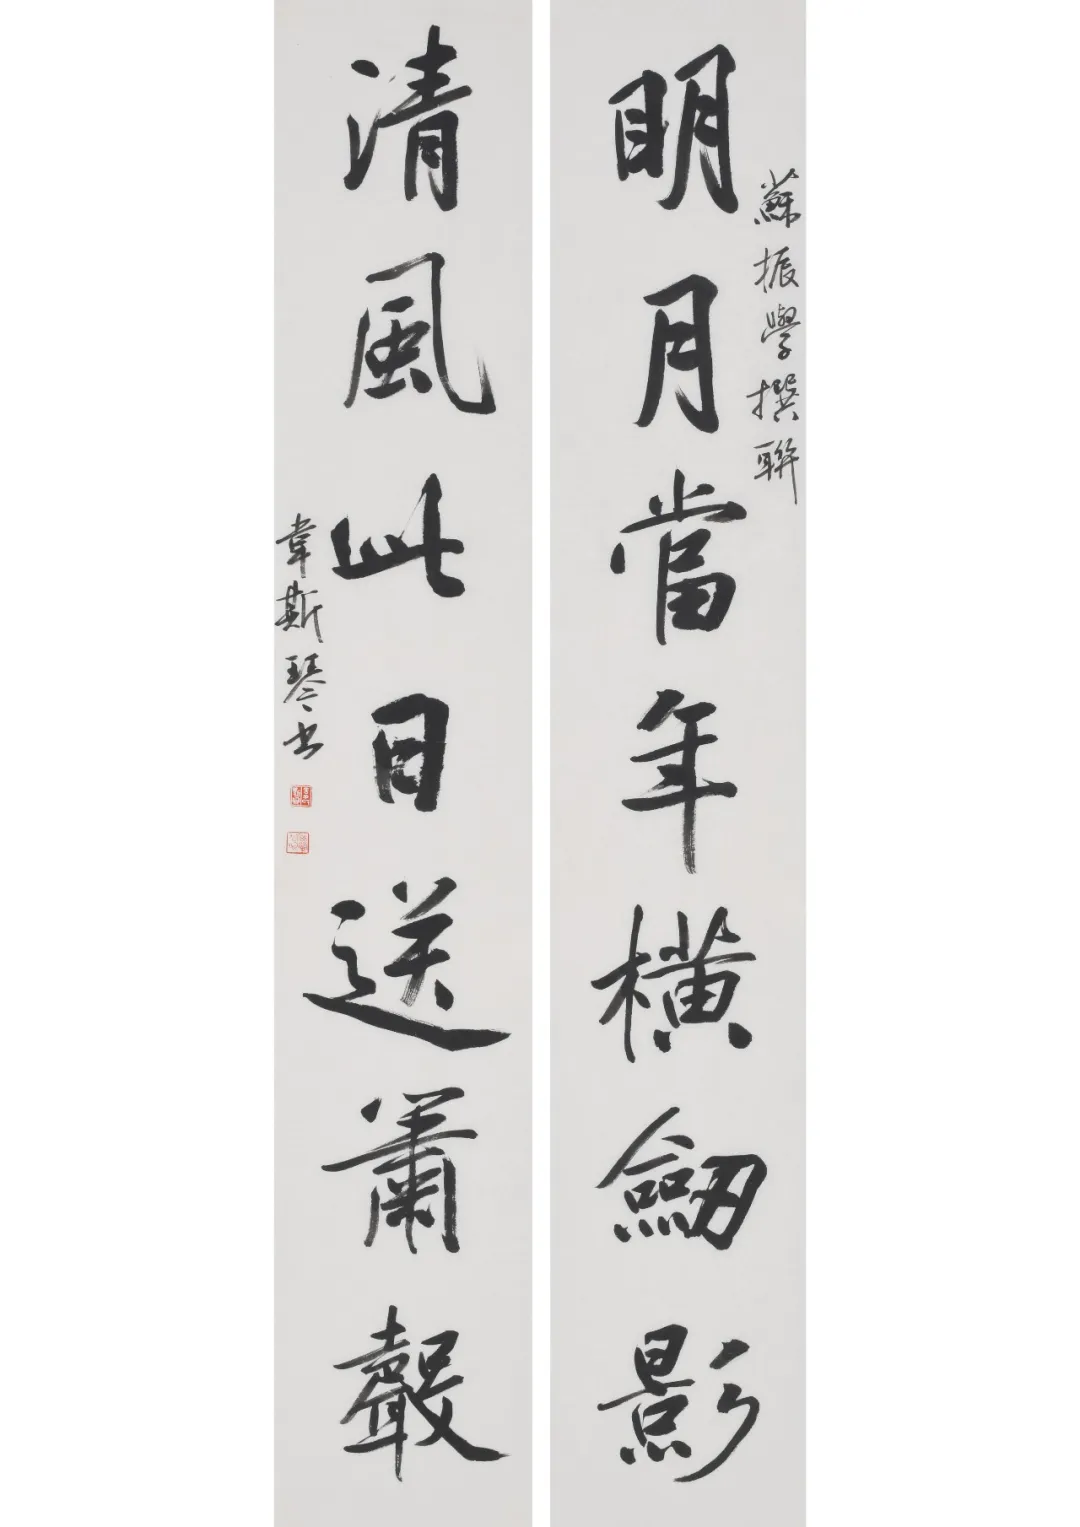 蘇振學撰聯
明月當年橫劒影
清風此日送蕭聲
韋斯琴书